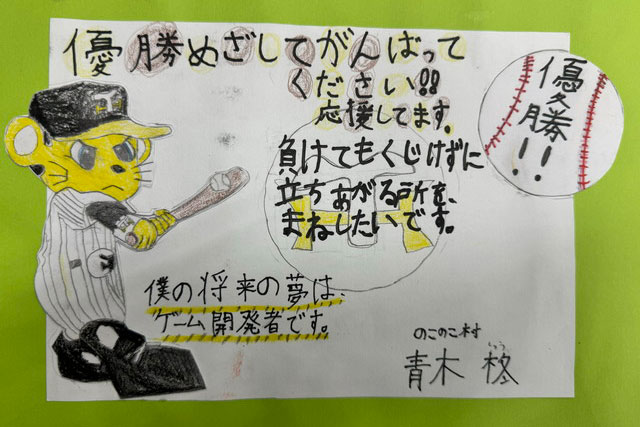 優勝めざしてがんばって
ください!!
応援してます。
優勝!!
負けてもくじけずに
立ちあがる所を、
まねしたいです。
僕の将来の夢は、
ゲーム開発者です。
のこのこ村
しゅう
青木 柊